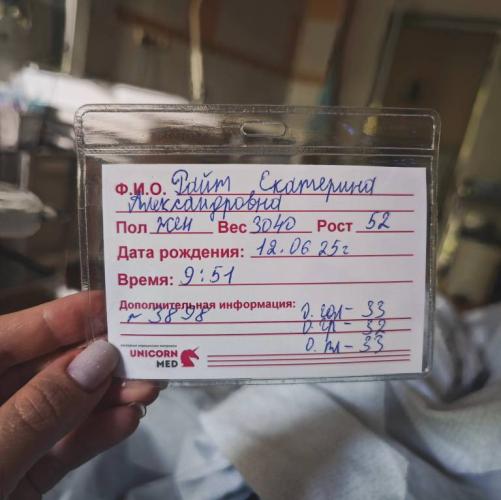 Ф.И.О. Райт Екатерина
Александровна
Пол жен Вес 3040 Рост 52
Дата рождения: 12.06 25г
Время: 9:51
Дополнительная информация:
№ 3898 О. гол - 33
О. гр - 32
О. пл - 33
UNICORN
MED